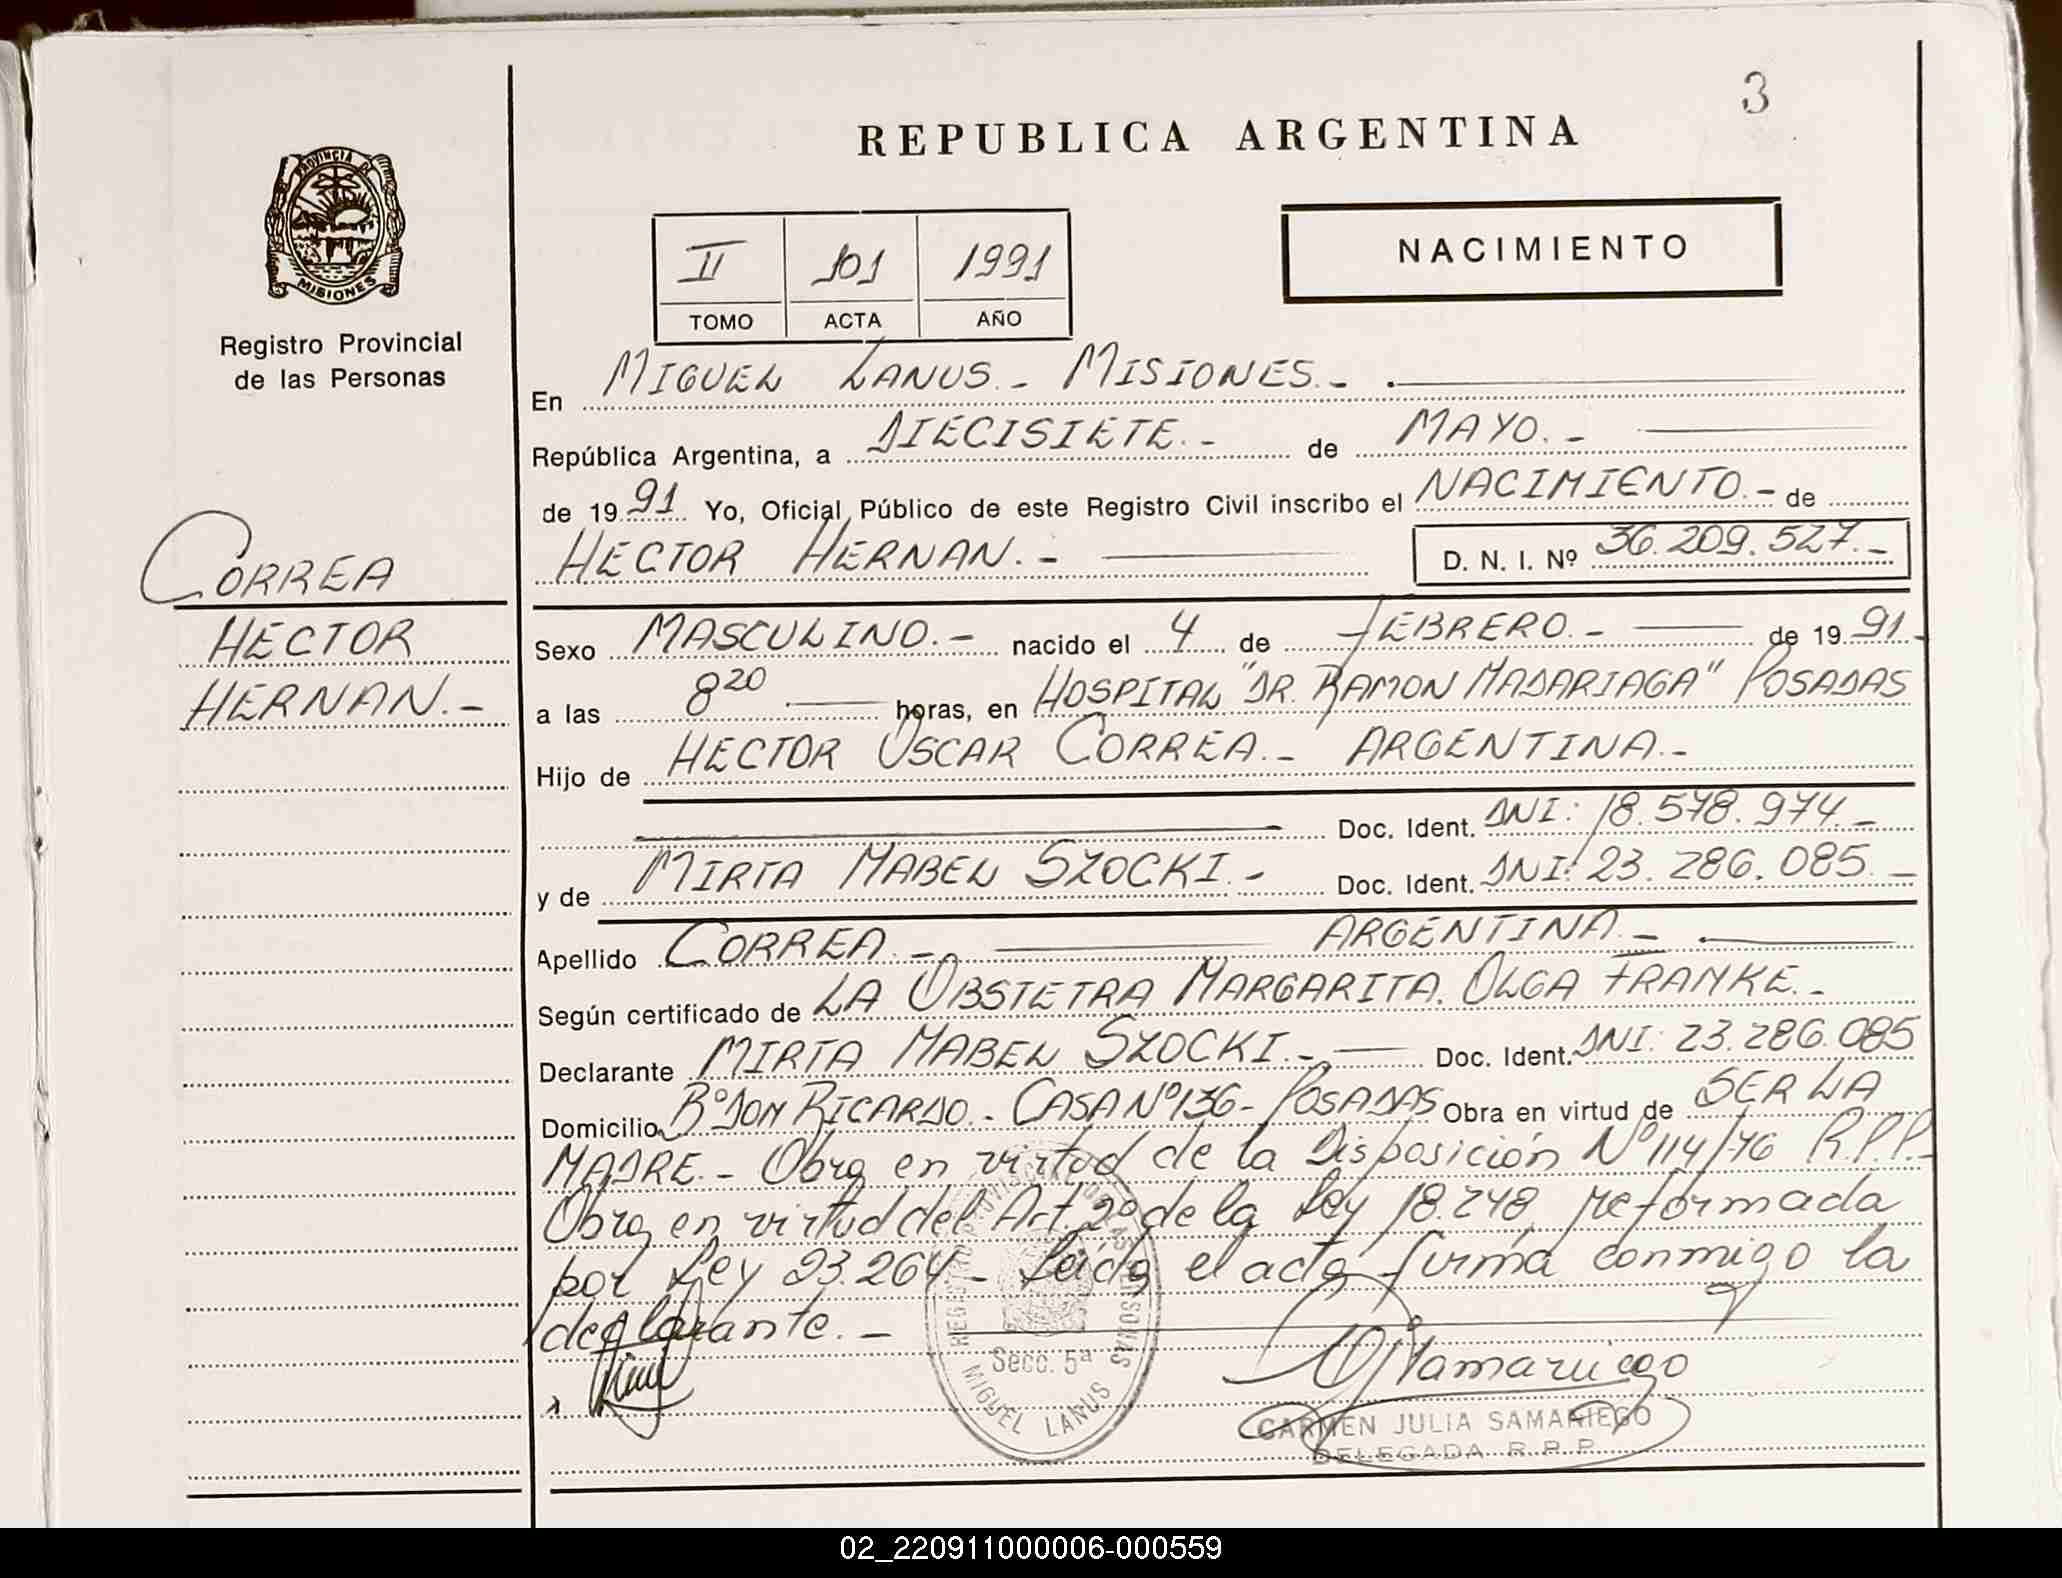 3
REPUBLICA ARGENTINA
PROVINCIA DE
MISIONES
Registro Provincial
de las Personas
II 101 1991
TOMO ACTA AÑO
NACIMIENTO
CORREA
HECTOR
HERNAN.-
En MIGUEL LANUS.- MISIONES.-
República Argentina, a DIECISIETE.- de MAYO.-
de 1991 Yo, Oficial Público de este Registro Civil inscribo el NACIMIENTO.- de
HECTOR HERNAN.- D. N. I. Nº 36.209.527.-
Sexo MASCULINO.- nacido el 4 de FEBRERO.- de 1991.-
a las 8 20 horas, en HOSPITAL "DR. RAMON MADARIAGA" POSADAS
Hijo de HECTOR OSCAR CORREA.- ARGENTINA.-
Doc. Ident. DNI: 18.578.974.-
y de MIRTA MABEL SZOCKI.- Doc. Ident. DNI: 23.286.085.-
Apellido CORREA.- ARGENTINA.-
Según certificado de LA OBSTETRA MARGARITA. OLGA FRANKE.-
Declarante MIRTA MABEL SZOCKI.- Doc. Ident. DNI: 23.286.085
Domicilio Bº DON RICARDO.- CASA Nº 136- POSADAS Obra en virtud de SER LA
MADRE.- Obra en virtud de la Disposición Nº 114/76 R.P.P.-
Obra en virtud del Art. 2º de la Ley 18.248, reformada
por Ley 23.264- Leída el acta firma conmigo la
declarante.-
REGISTRO PROVINCIAL DE LAS PERSONAS
Secc. 5ª
MIGUEL LANUS
CARMEN JULIA SAMARIEGO
DELEGADA R. P. P.
02_220911000006-000559